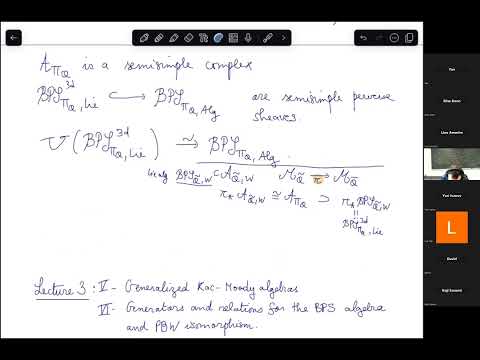 A_{Π_Q} is a semisimple complex
BPS^{3d}_{Π_Q, Lie} ↪ BPS_{Π_Q, Alg} are semisimple perverse sheaves.
U(BPS^{3d}_{Π_Q, Lie}) ≃→ BPS_{Π_Q, Alg}.
Lie alg BPS_{Q̃,W} ⊂ A_{Q̃,W} M_{Q̃} π→ M_{Q̄}
π_* A_{Q̃,W} ≅ A_{Π_Q} ⊃ π_* BPS_{Q̃,W}
BPS^{3d}_{Π_Q, Lie}
Lecture 3 : V - Generalized Kac-Moody algebras
VI - Generators and relations for the BPS algebra
and PBW isomorphism.
L
David